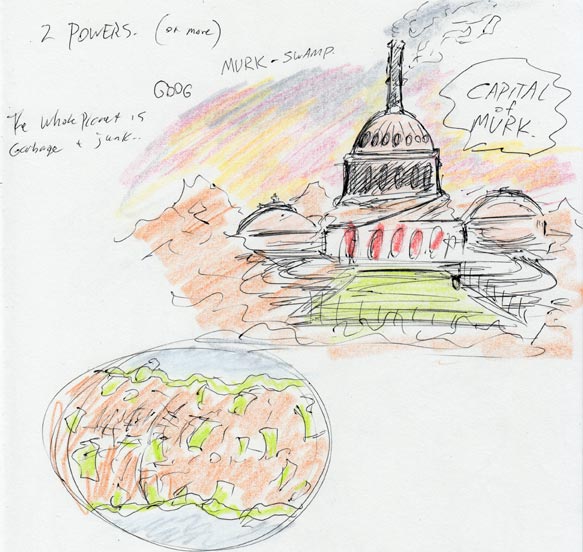 2 POWERS. (or more)
MURK-SWAMP.
GOOG
The whole Planet is
Garbage + junk..
CAPITAL
of
MURK.